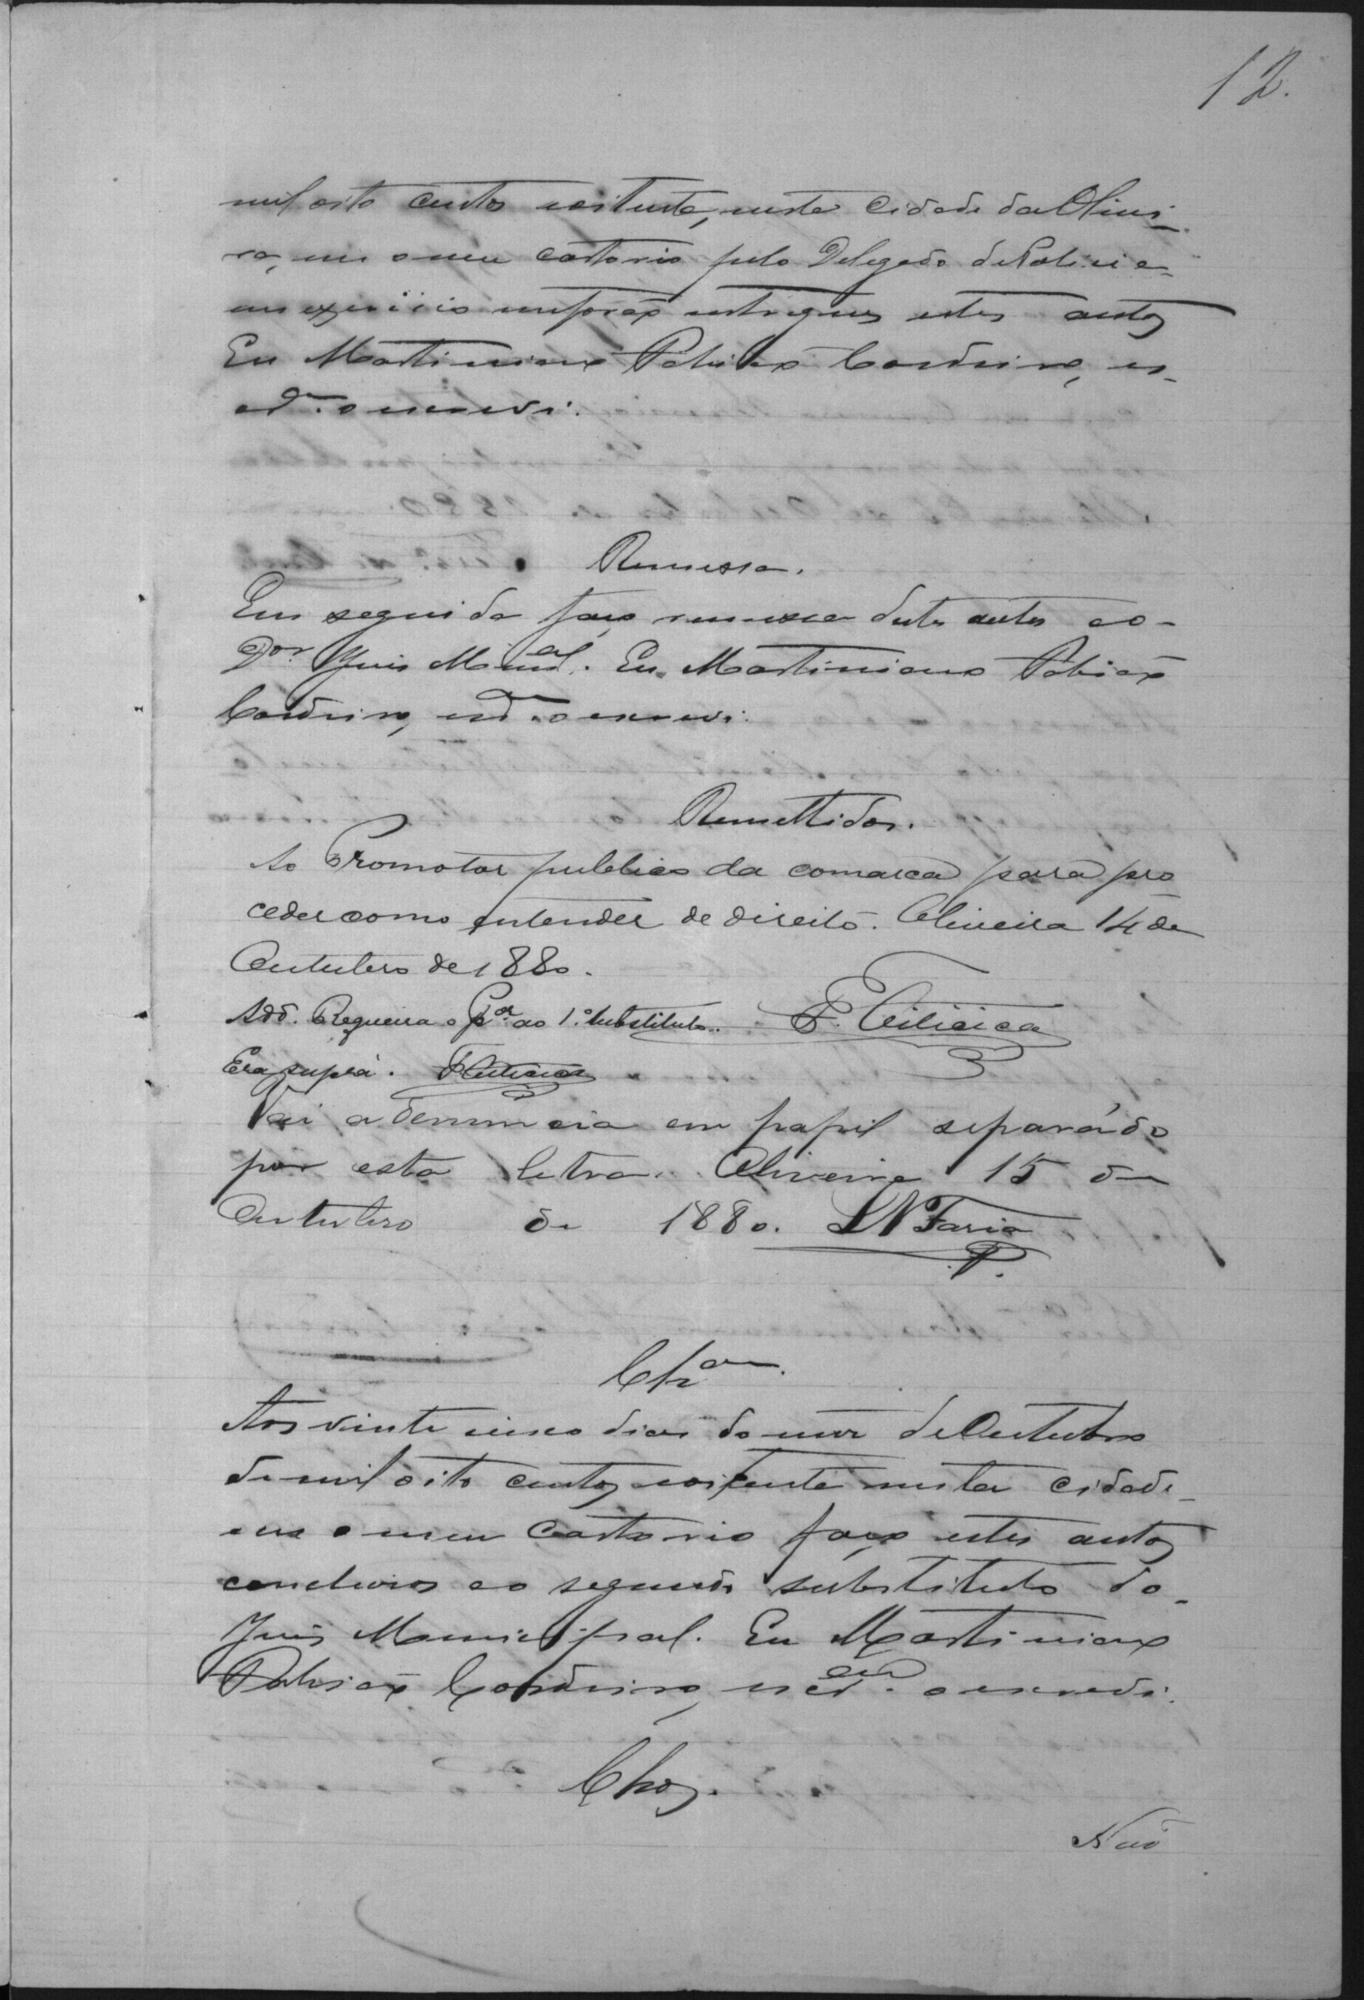 12.
mil oito centos eoitenta, nesta Cidade da Olivei-
ra, em o meu cartorio pelo Delegado de Policia-
em exercicio me forão entregues estes autos
Eu Martiniano Cordeiro, es-
am. o escrevi.
Remessa.
Em seguida faço remessa destes autos ao-
Dor. Juis Munal. Eu Martiniano
Cordeiro, o escrevi.
Remettidos.
Ao Promotor publico da comarca para pro
ceder como entender de direito. Oliveira 14 de
Outubro de 1880.
Add. Requeira o Por. ao 1.º substituto. F.
Era supra.
Vai a denuncia em papel separádo
por esta letra. Oliveira 15 de
Outubro de 1880. L N Faria
P.
Clzam.
Aos vinte cinco dias do mez de Outubro
de mil oito centos eoitenta nesta cidade-
em o meu Cartorio faço estes autos
conclusos ao segundo substituto do-
Juis Municipal. Eu Martiniano
Cordeiro, o escrevi.
Clzos.
Naõ